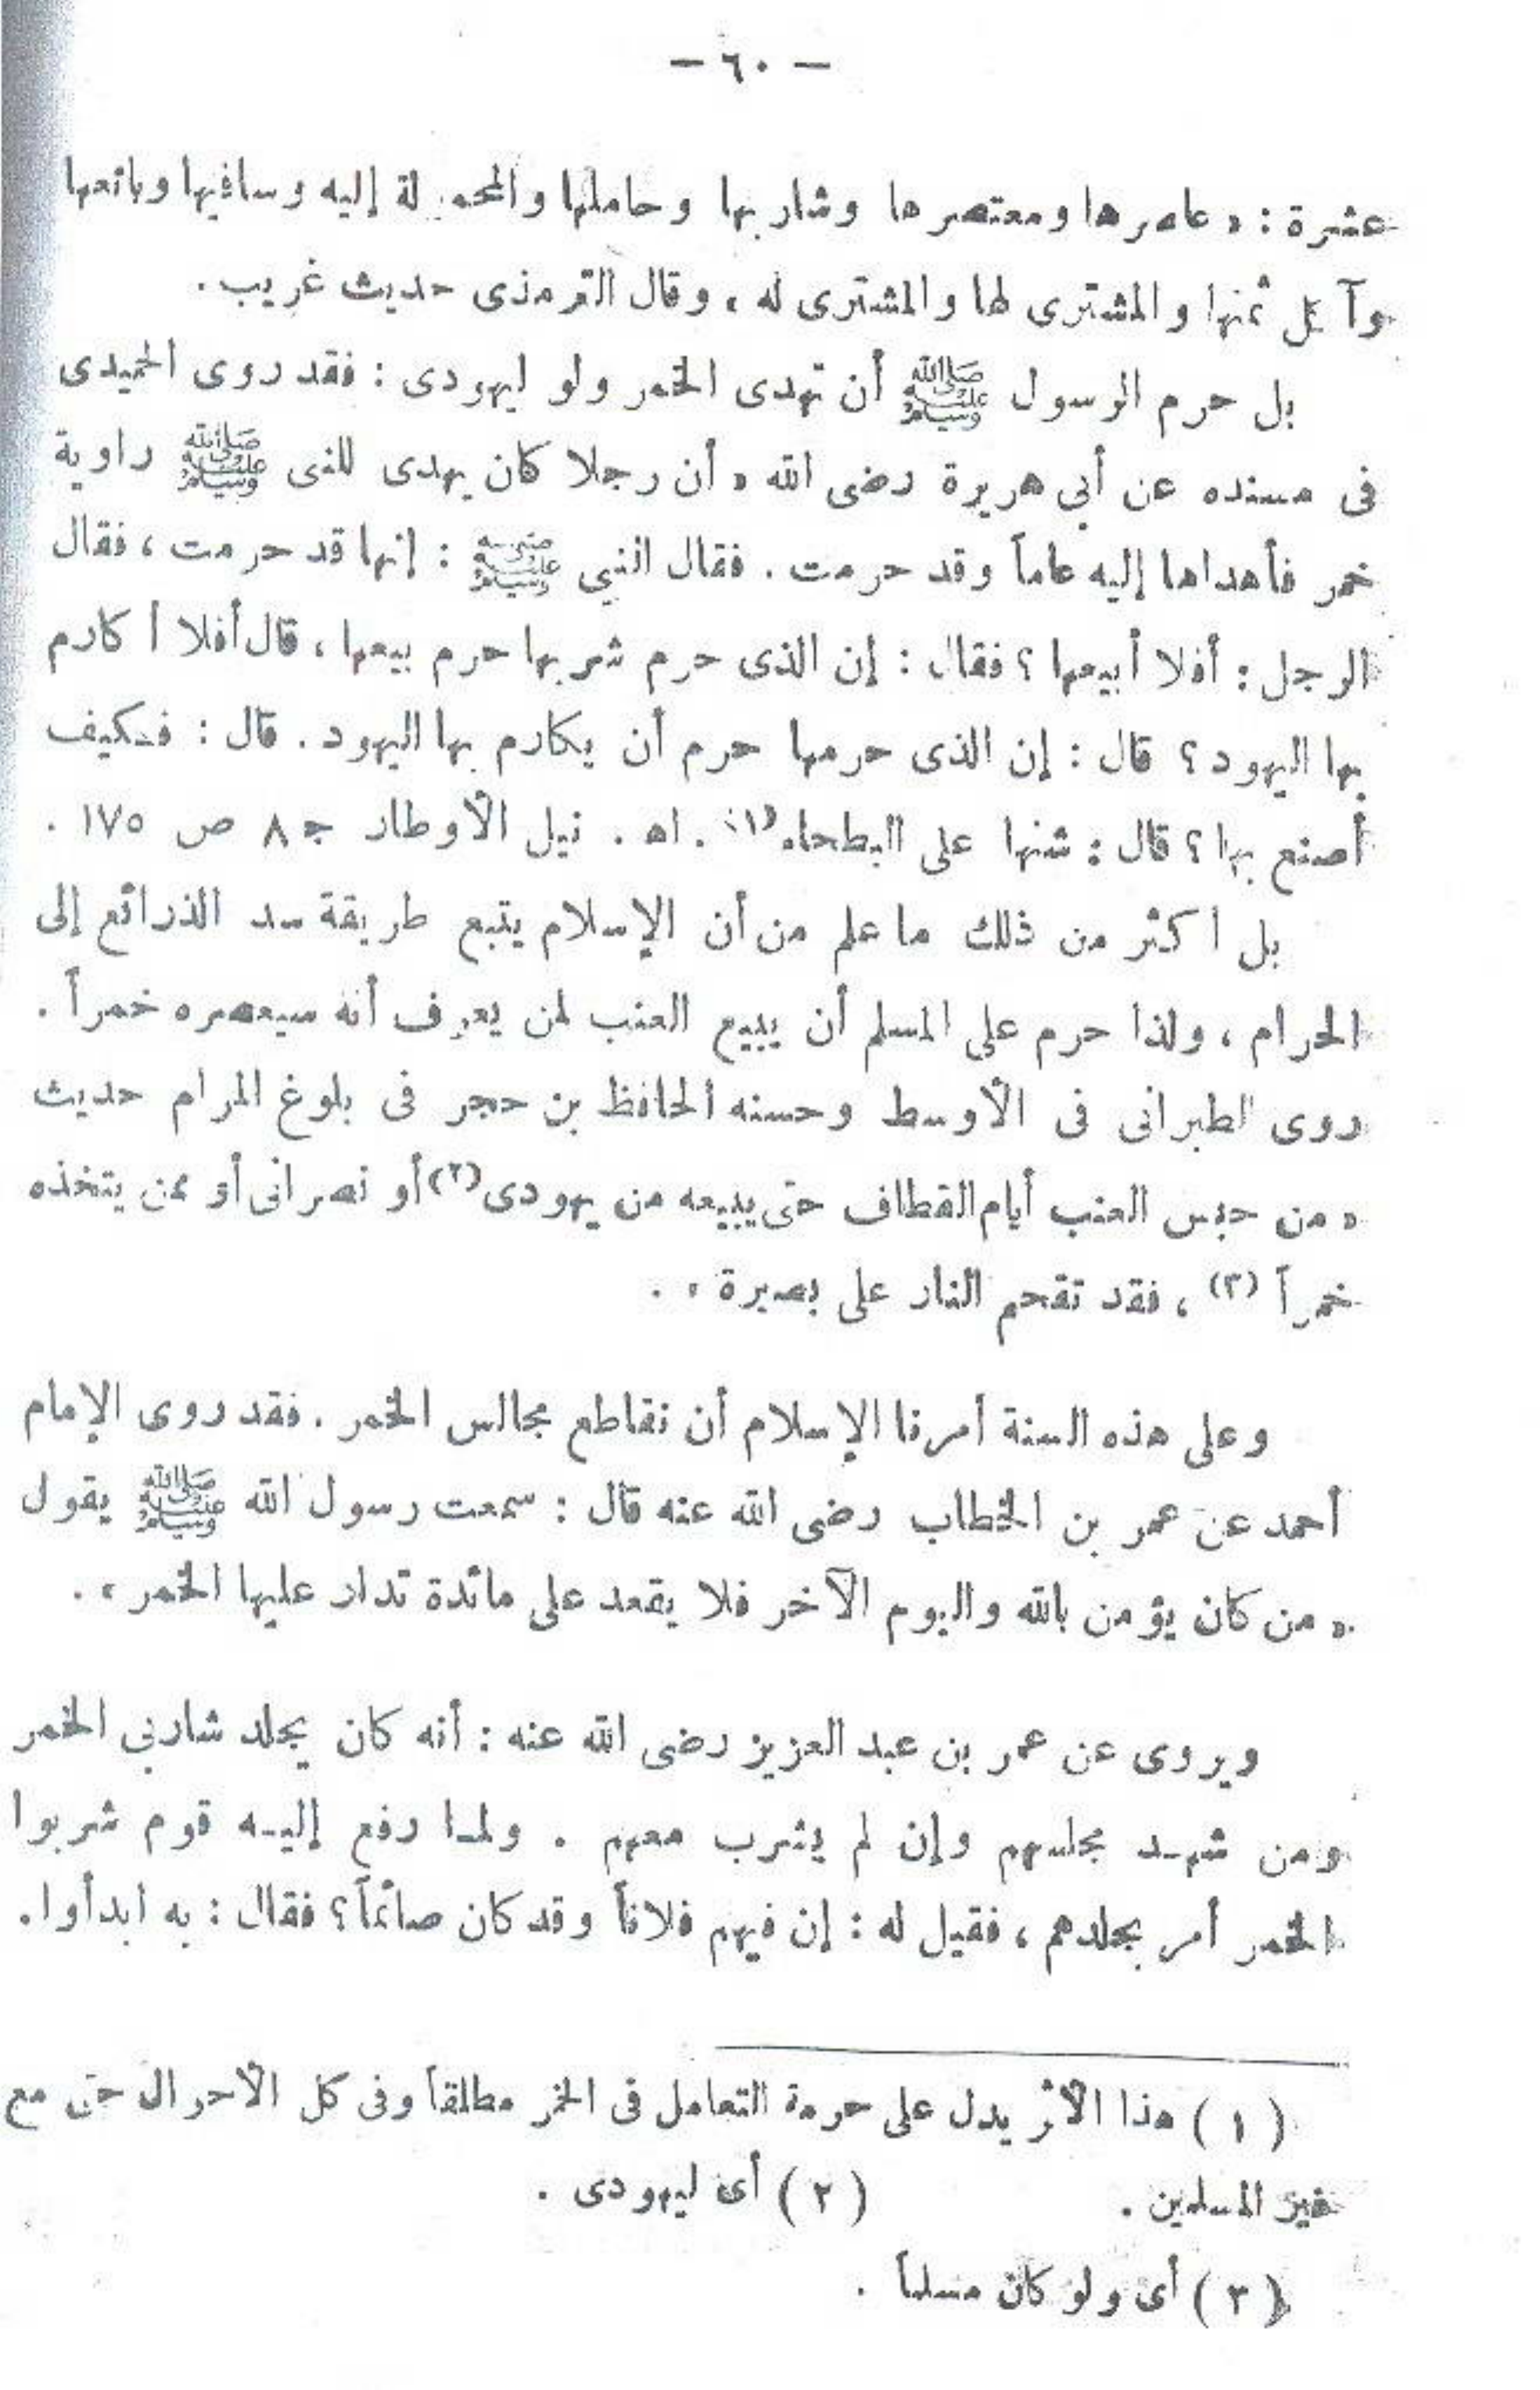 — ٦٠ —
عشرة : « عاصرها ومعتصرها وشاربها وحاملها والمحمولة إليه وساقيها وبائعها
وآكل ثمنها والمشترى لها والمشترى له » وقال الترمذى حديث غريب .
بل حرم الرسول ﷺ أن تهدى الخمر ولو ليهودى : فقد روى الحميدى
فى مسنده عن أبى هريرة رضى الله « أن رجلا كان يهدى للنبى ﷺ راوية
خمر فأهداها إليه عاماً وقد حرمت . فقال النبي ﷺ : إنها قد حرمت ، فقال
الرجل : أفلا أبيعها ؟ فقال : إن الذى حرم شربها حرم بيعها ، قال أفلا أكارم
بها اليهود ؟ قال : إن الذى حرمها حرم أن يكارم بها اليهود . قال : فكيف
أصنع بها ؟ قال : شنها على البطحاء (١) . اهـ . نيل الأوطار جـ ٨ ص ١٧٥ .
بل أكثر من ذلك ما علم من أن الإسلام يتبع طريقة سد الذرائع إلى
الحرام ، ولذا حرم على المسلم أن يبيع العنب لمن يعرف أنه سيعصره خمراً .
روى الطبرانى فى الأوسط وحسنه الحافظ بن حجر فى بلوغ المرام حديث
« من حبس العنب أيام القطاف حتى يبيعه من يهودى (٢) أو نصرانى أو ممن يتخذه
خمراً (٣) ، فقد تقحم النار على بصيرة » .
وعلى هذه السنة أمرنا الإسلام أن نقاطع مجالس الخمر . فقد روى الإمام
أحمد عن عمر بن الخطاب رضى الله عنه قال : سمعت رسول الله ﷺ يقول
« من كان يؤمن بالله واليوم الآخر فلا يقعد على مائدة تدار عليها الخمر » .
ويروى عن عمر بن عبد العزيز رضى الله عنه : أنه كان يجلد شاربى الخمر
ومن شهد مجلسهم وإن لم يشرب معهم . ولما رفع إليه قوم شربوا
الخمر أمر بجلدهم ، فقيل له : إن فيهم فلاناً وقد كان صائماً ؟ فقال : به ابدأوا .
( ١ ) هذا الأثر يدل على حرمة التعامل فى الخمر مطلقاً وفى كل الأحوال حتى مع
غير المسلمين . ( ٢ ) أى ليهودى .
( ٣ ) أى ولو كان مسلماً .